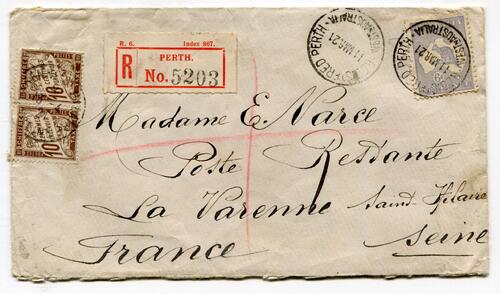 R. 6. Index 867.
PERTH.
R No. 5203
REGISTERED PERTH WESTERN AUSTRALIA
11 MAR 21
10
10
Madame E. Narce
Poste Restante
La Varenne Saint-Hilaire
France Seine